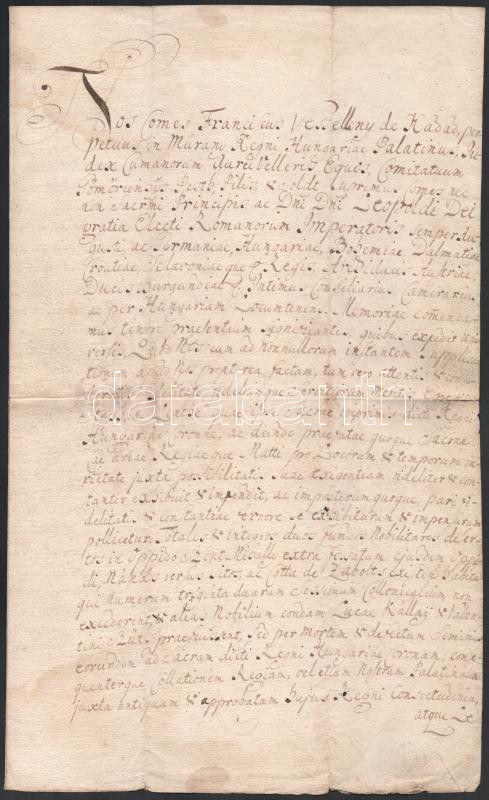 Nos Comes Franciscus Vesselleny de Hadad, per
petuus in Murany Regni Hungariae Palatinus, Ju
dex Cumanorum Aurei Velleris Eques, Comitatuum
Gömöriensis Pesth, Pilis, & Solth Supremus Comes nec
non Sacrmi Principis ac Dni Dni Leopoldi Dei
gratia Electi Romanorum Imperatoris Semper Au
gusti, ac Germaniae, Hungariae, Bohemiae, Dalmatiae
Croatiae, Sclavoniaeque & Regis, Archiducis Austriae,
Ducis Burgundiae & Intimus Consiliarius, Camerarius,
ac per Hungariam Locumtenens. Memoriae Comenda
mus tenore praesentium significantes, quibus expedit uni
versis, Quod Nos cum ad nonnullorum instantem Supplica
tionem apud Nos propterea factam, tum vero attentis &
fidelitate fidelium servitiorum meritis
Sacrae dicti Regni
Hungariae Coronae, ac deinde praefatae quoque Sacrae
Caesareae Regiaeque Matti pro Locorum & temporum va
rietate juxta possibilitatis suae exigentiam fideliter & con
stanter exhibuit & impendit, ac imposterum quoque, pari fi
delitatis & constantiae fervore se exhibiturum & impensurum
pollicetur. Totales & integros duos fundos Nobilitares deser
tos in Oppido Szent Mihaly extra fossatum ejusdem Oppi
di, Nánás versus sitos, ac Cottu de Zabolts existen habitos
qui numerum triginta duarum Sessionum Collonicalium non
excederent, & alias Nobilium condam Lucae Kallay & Valen
tini Büts praefuissent, Sed per mortem & defectum Seminis
eorundem ad Sacram dicti Regni Hungariae Coronam, conse
quenterque Collationem Regiam, vel etiam Nostram Palatinalem
juxta antiquam & approbatam hujus Regni Consvetudinem,
atque Le
darabanth